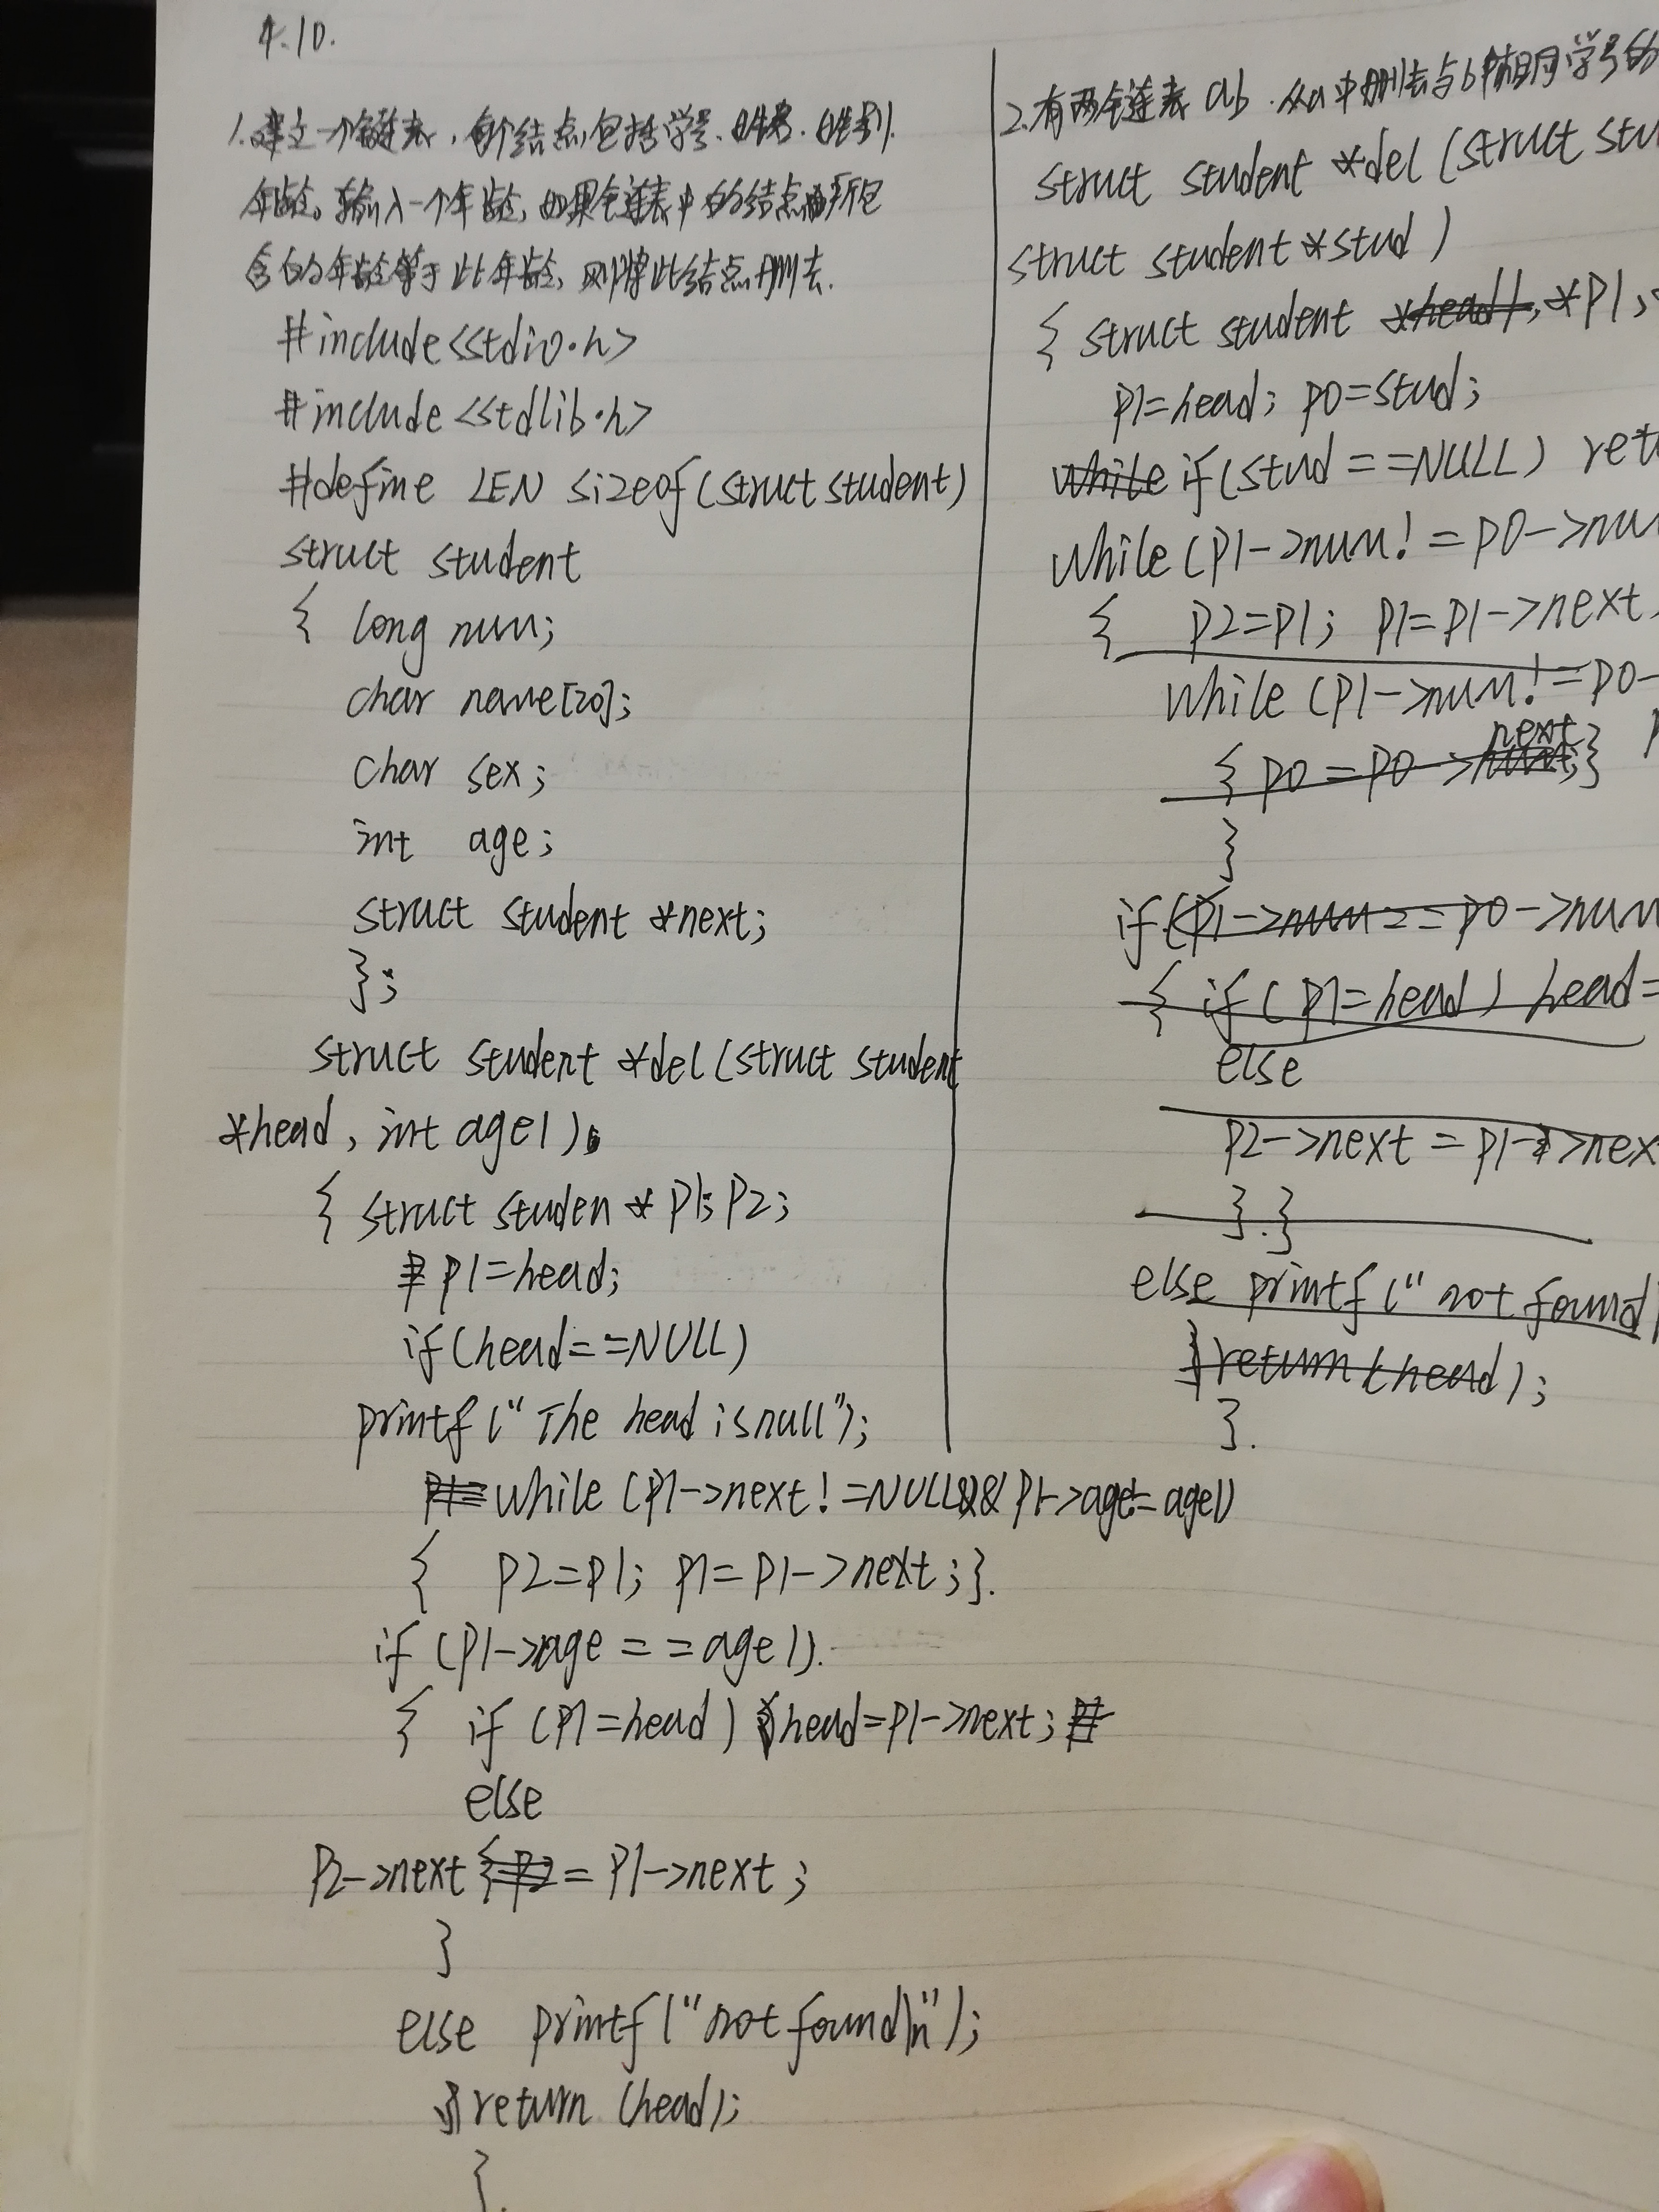 4.10.
1.建立一个链表,每个结点包括学号、姓名、性别、
年龄。输入一个年龄,如果链表中的结点所包
含的年龄等于此年龄,则将此结点删去.
#include<stdio.h>
#include<stdlib.h>
#define LEN sizeof(struct student)
struct student
{ long num;
char name[20];
char sex;
int age;
struct student *next;
};
struct student *del(struct student
*head, int age1)
{ struct studen * p1; p2;
p1=head;
if(head==NULL)
printf("The head is null");
while (p1->next!=NULL&& p1->age!=age1)
{ p2=p1; p1=p1->next;}.
if (p1->age==age1).
{ if (p1=head) head=p1->next;
else
p2->next = p1->next;
}
else printf("not found\n");
return (head);
}.
2.有两个链表ab.从a中删去与b中相同学号的
struct student *del(struct stu
struct student *stud)
{ struct student *head1, *p1,
p1=head; p0=stud;
while if(stud==NULL) ret
while(p1->num!=p0->nu
{ p2=p1; p1=p1->next
while (p1->num!=p0-
{ p0=p0->next;}
}
if(p1->num==p0->num
{ if(p1=head) head=
else
p2->next=p1->nex
}.}
else printf("not found
}return(head);
}.